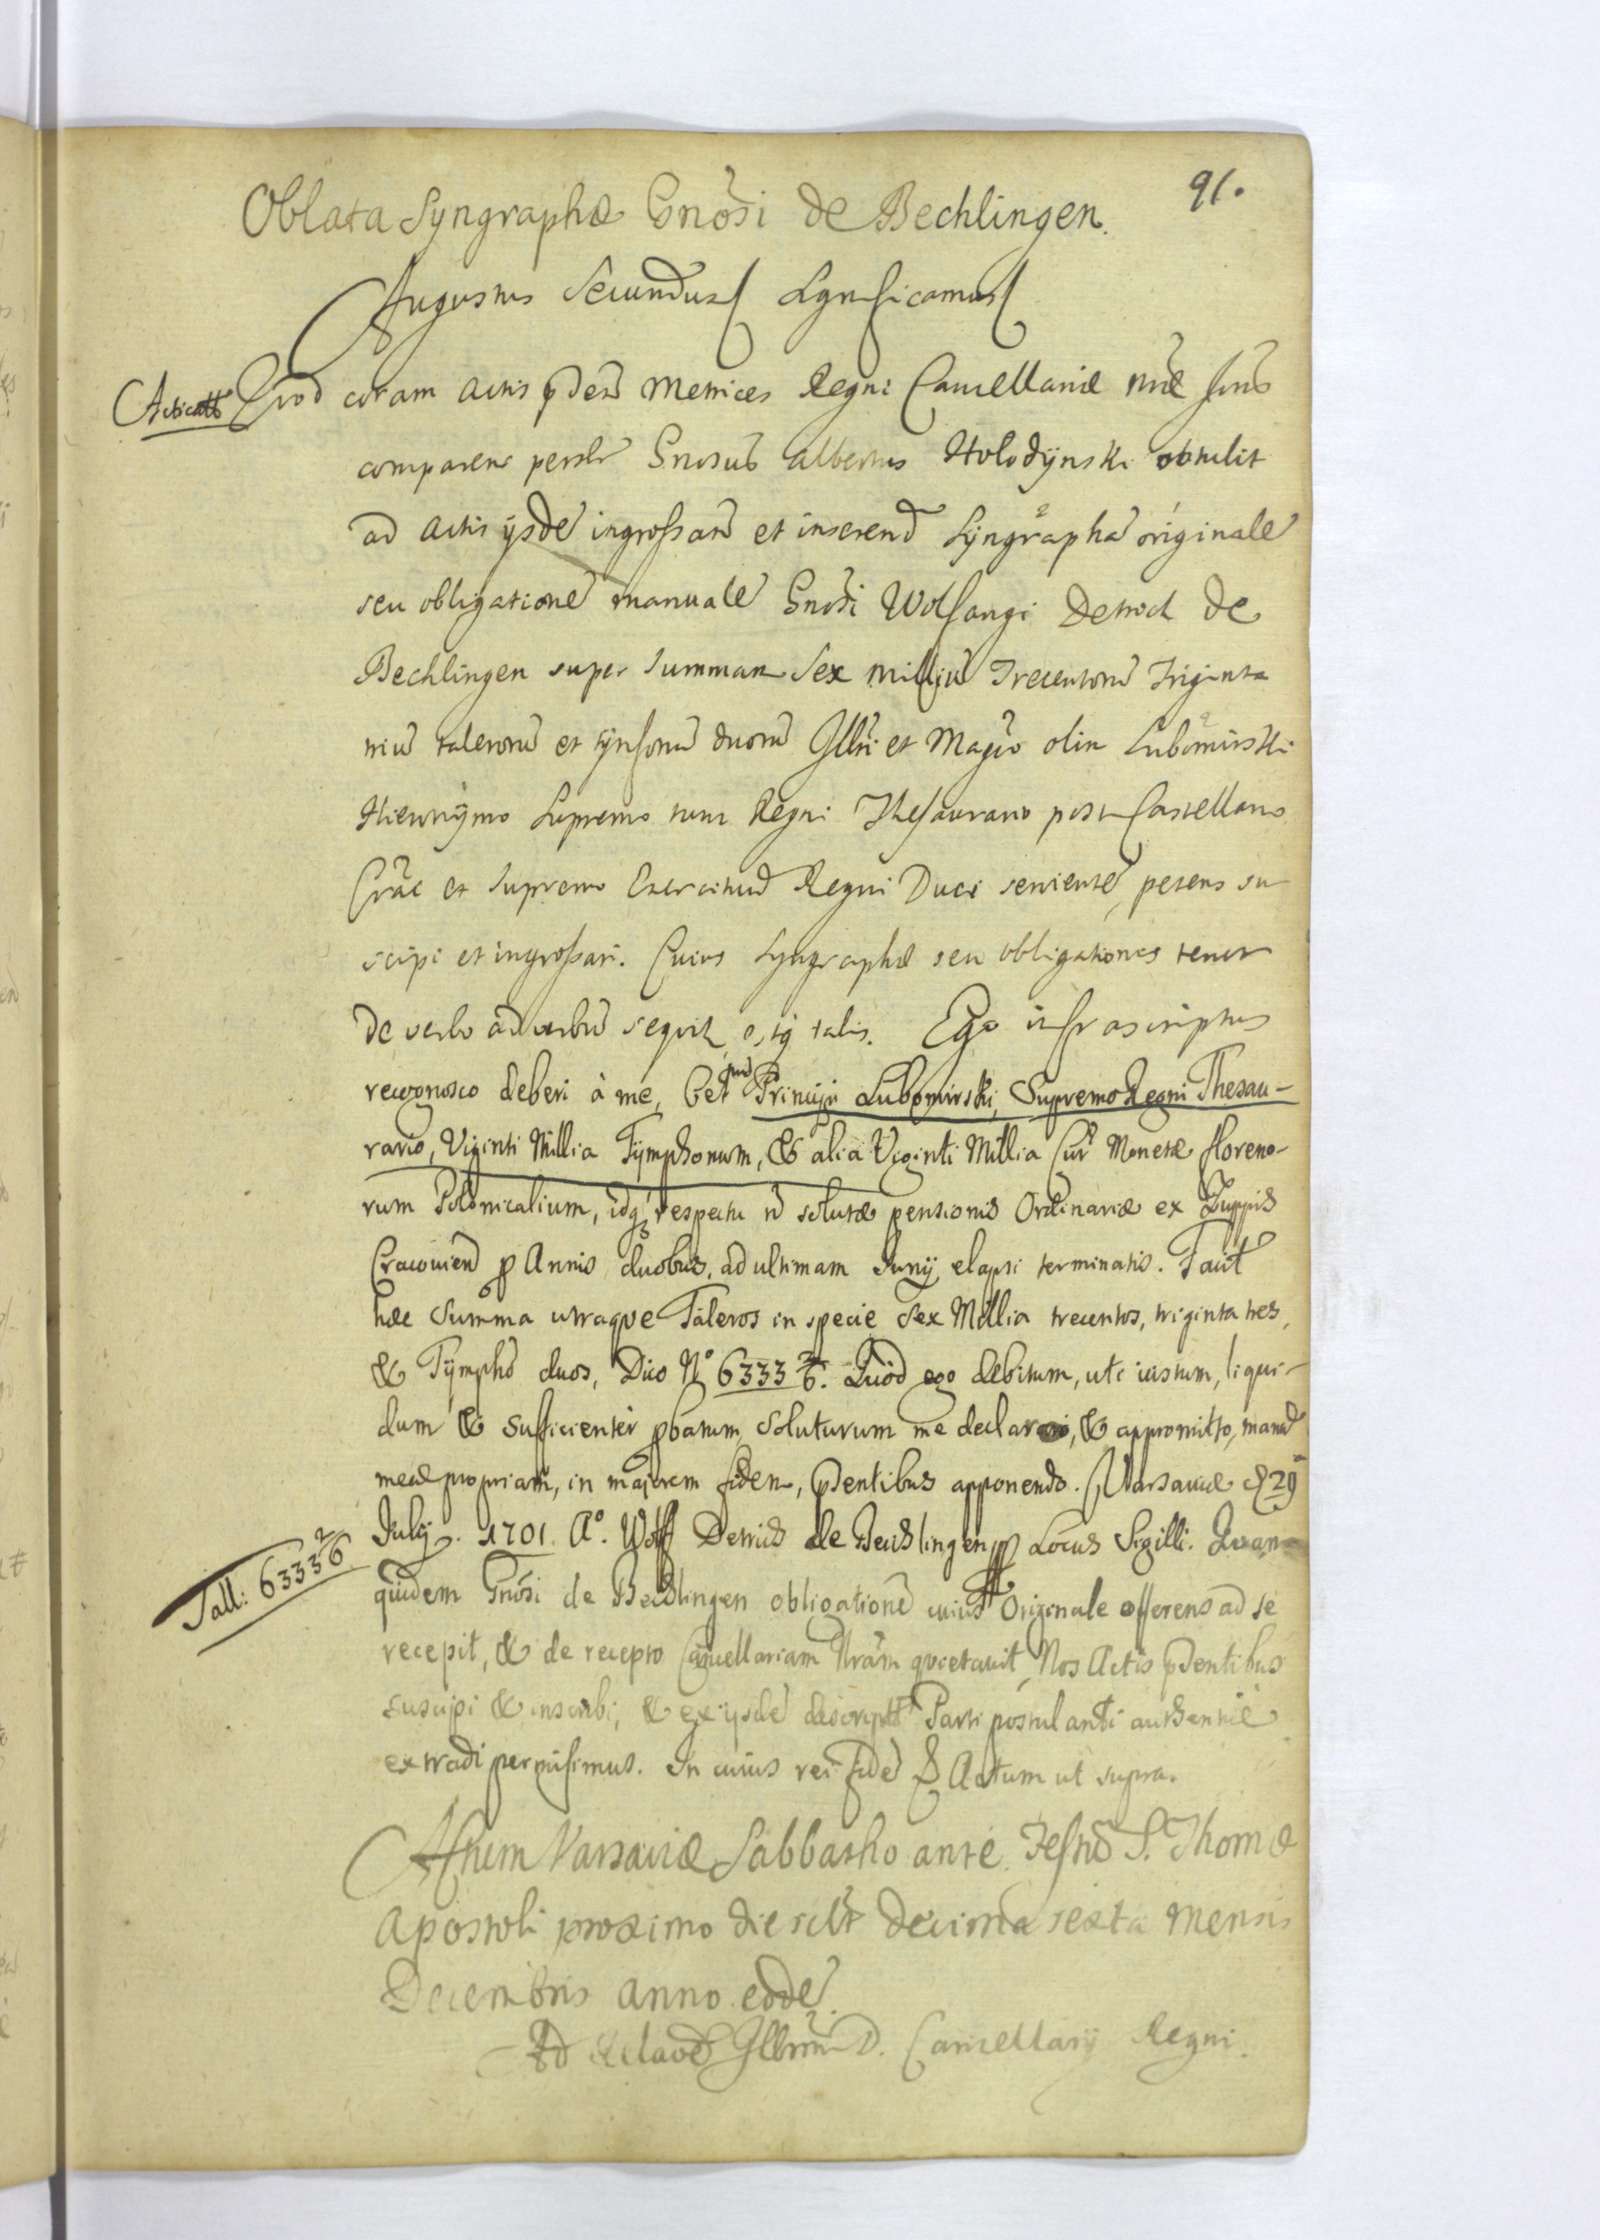 91.
Oblata Syngraphæ Gnosi de Bechlingen.
Augustus Secundus Significamus
Acticat Quod coram actis pñden Metrices Regni Cancellariæ nræ
comparens persltr Gnosus Albertus Holodÿnski obtulit
ad actis ÿsde ingrossand et inserend Sÿngrapha originale
seu obligatione manuale Gnosi Wolfangi Detrich de
Bechlingen super summam Sex milliũ Trecentorũ Triginta
triũ talerorũ et tÿnforũ duorũ Illri et Magco olim Lubomirski
Hieronÿmo Supremo tunc Regni Thesaurario post Castellano
Crac et Supremo Exercituũ Regni Duci serviente, petens su
scipi et ingrossari. Cuius Syngraphæ seu obligationis tenor
de verbo ad verbũ sequit estq talis. Ego infrascriptus
recognosco deberi à me, Cel Principi Lubomirski, Supremo Regni Thesau-
rario, Viginti Millia Tÿmphonum, & alia Viginti Millia Cur Monetæ floreno-
rum Polonicalium, idq respectu ñ solutæ pensionis Ordinariæ ex Zuppis
Cracovien p Annis duobus, ad ultimam Junij elapsi terminatis. Facit
hæc Summa utraque Taleros in specie Sex Millia trecentos, triginta tres,
& Tÿmpho duos, Dico No 6333 2/6. Quod ego debitum, uti iustum, liqui-
dum & sufficienter pbatum, soluturum me declaro, & appromitto, manũ
meã propriam, in majorem fidem, pñsentibus apponendo. Varsaviæ d 29
July. 1701. Ao. Wolff Detrich de Beichlingen Locus Sigilli. Quam
Tall: 6333 2/6
quidem Gnosi de Beichlingen obligatione cuius Originale offerens ad se
recepit, & de recepto Cancellariam Nram quietavit, Nos Actis pñsentibus
suscipi & inscribi, & ex ijsde descript Parti postulanti authentice
extradi permisimus. In cuius rei fide Actum ut supra.
Actum Varsaviæ Sabbatho ante Festũ S. Thomæ
Apostoli proximo die sclt decima sexta mensis
Decembris anno eode.
Ad relaoe Illrmi D. Cancellarij Regni.